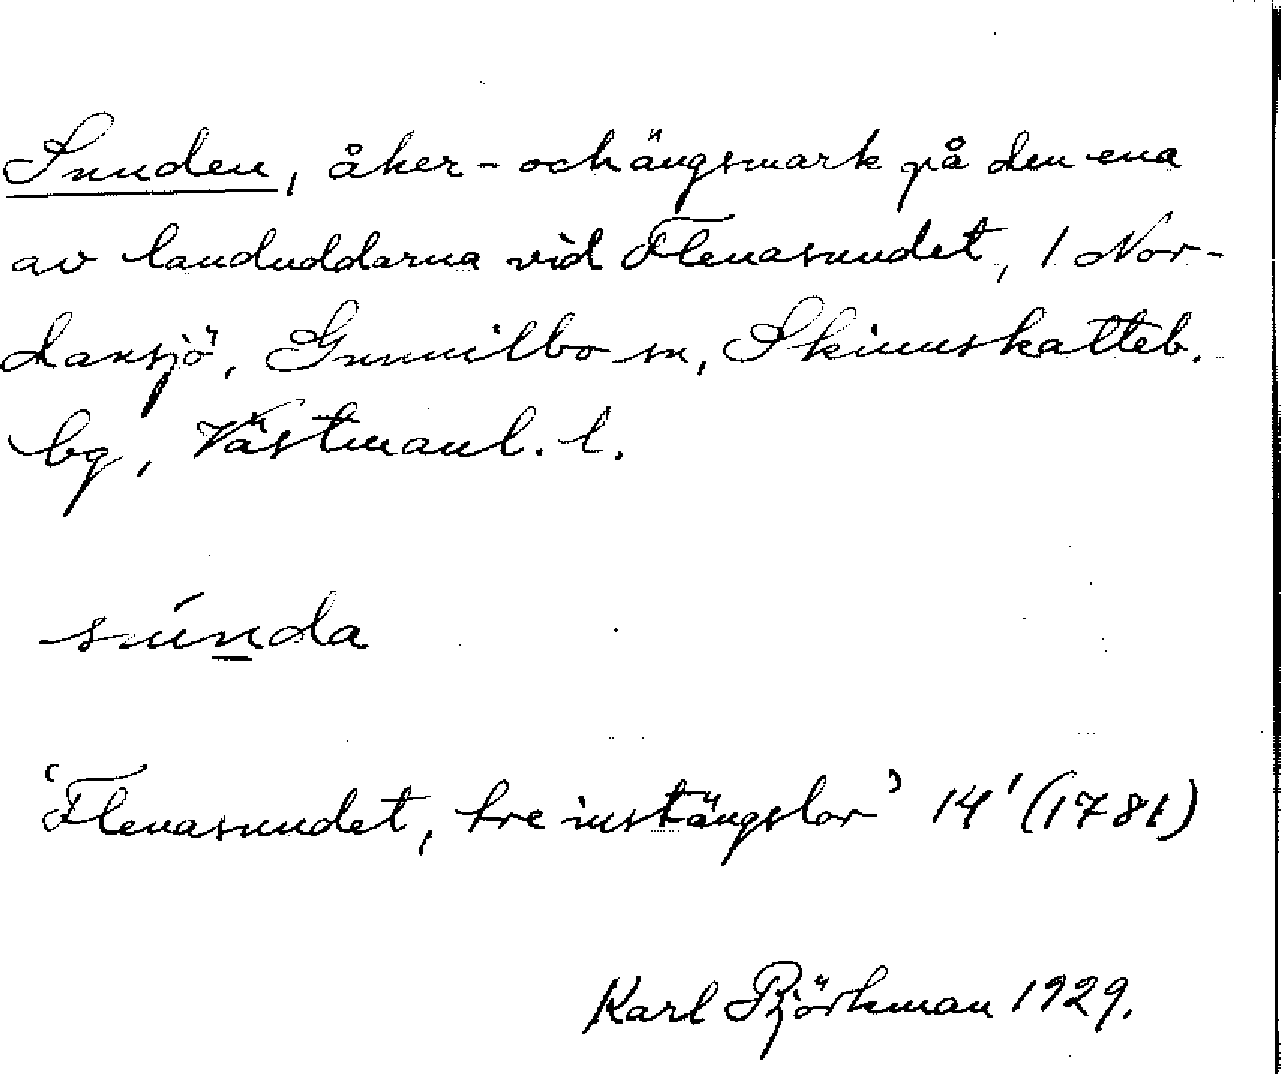 Sunden, åker- och ängsmark på den ena
av landuddarna vid Flenasundet, 1 Nor-
dansjö, Gunnilbo sn, Skinnskatteb.
bg, Västmanl. l.
súnda
'Flenasundet, tre instängslor' 14' (1781)
Karl Björkman 1929.